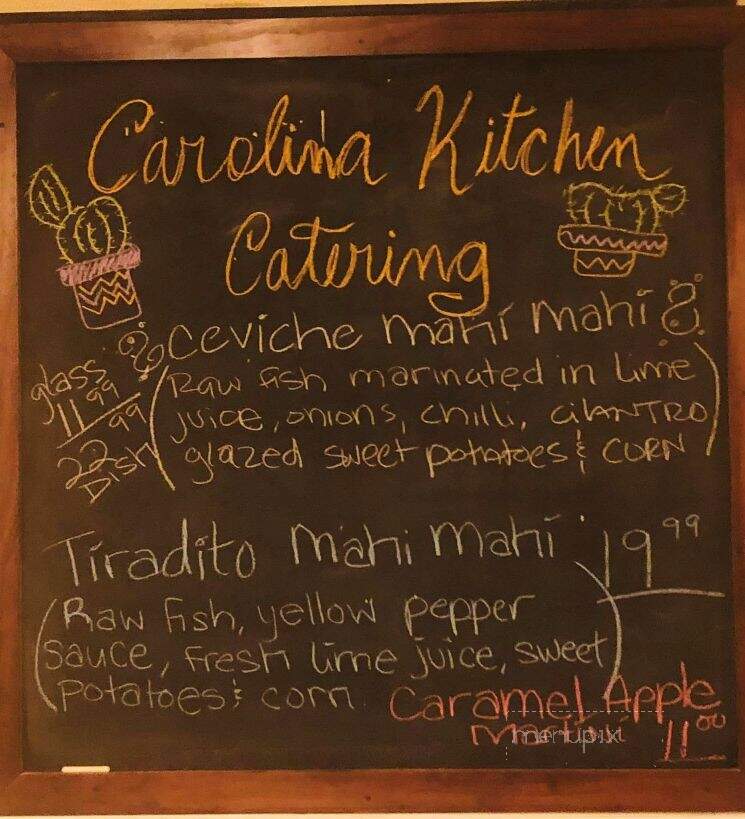 Carolina Kitchen
Catering
Ceviche mahi mahi
glass 11 99
22 99 Dish
(Raw fish marinated in lime
juice, onions, chilli, cilantro
glazed sweet potatoes & corn)
Tiradito mahi mahi 19 99
(Raw fish, yellow pepper
sauce, Fresh lime juice, sweet
potatoes & corn)
Caramel Apple
Martini 11 00
menupix